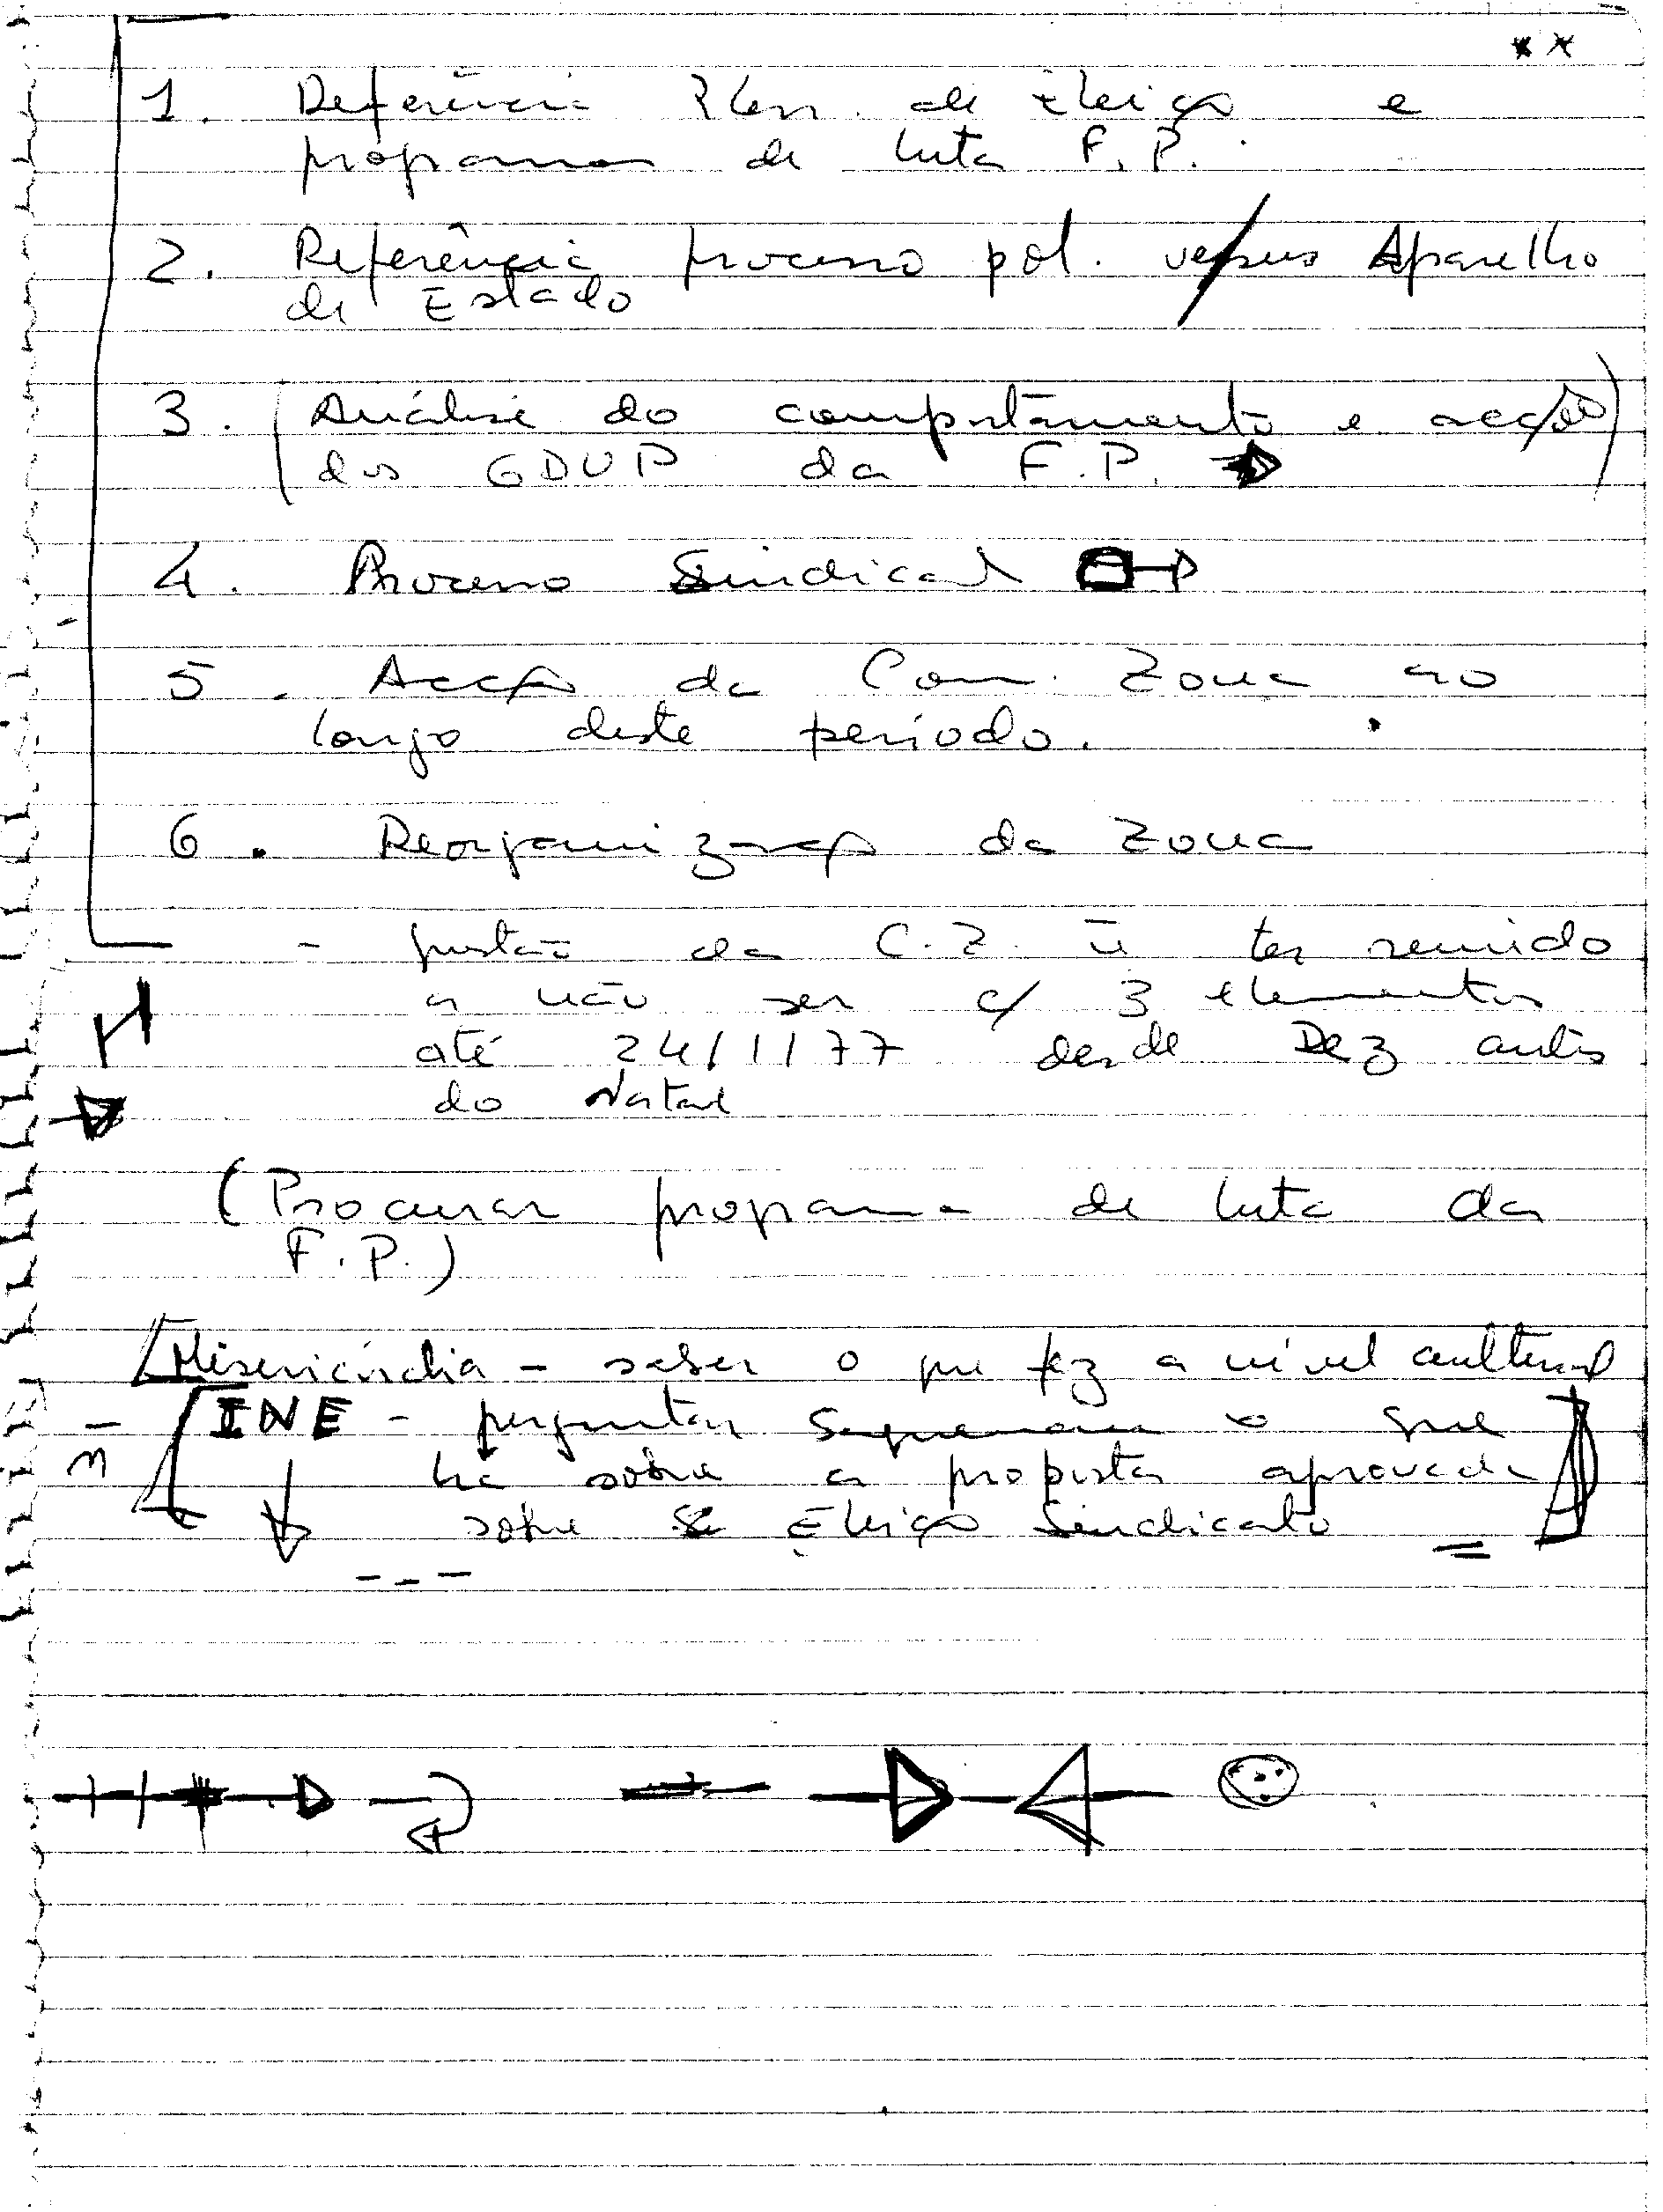 1. Referência Plen. de Eleição e
programa de luta F.P.
2. Referência processo pol. versus Aparelho
de Estado
3. (Análise do comportamento e acção)
dos GDUP da F.P.
4. Processo Sindical
5. Acção da Com. Zona ao
longo deste período.
6. Reorganização da Zona
- questão da C.Z. ñ ter reunido
a não ser c/ 3 elementos
até 24/1/77 desde Dez antes
do Natal
(Procurar programa de luta da
F.P.)
Misericórdia - saber o que fez a nível cultural
INE - perguntar o que
há sobre a proposta aprovada
sobre Eleição Sindicato